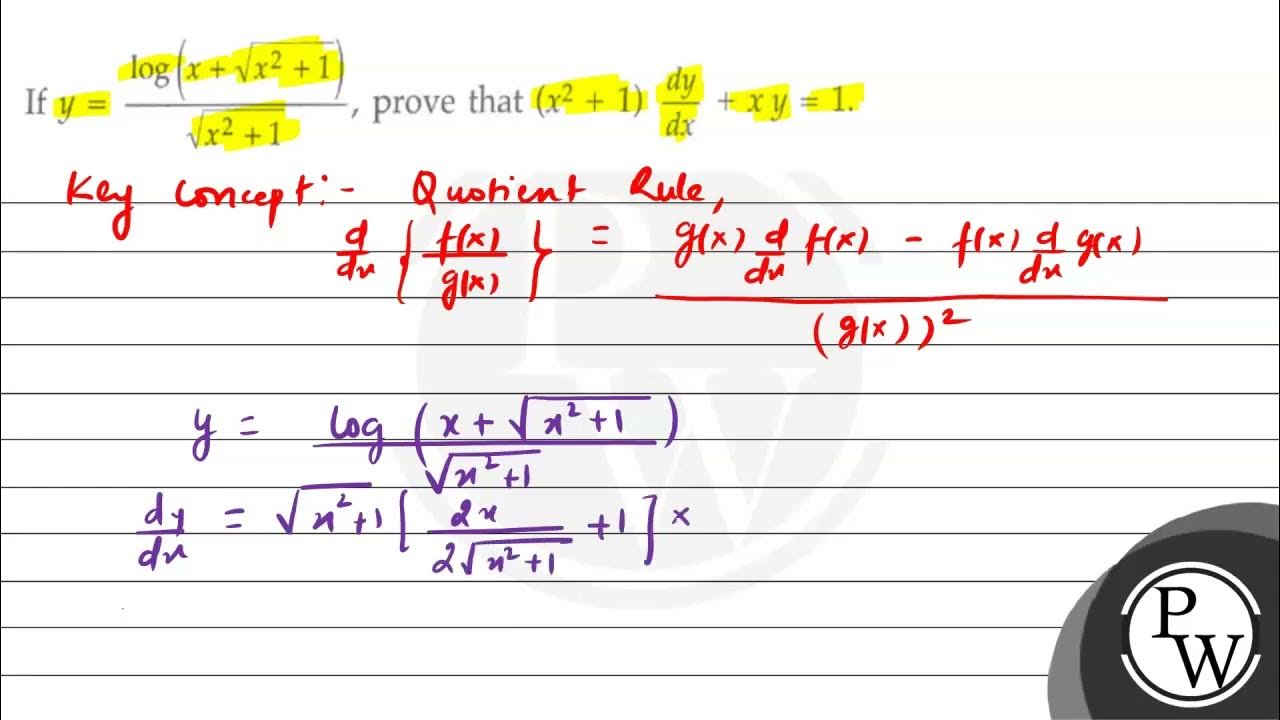 If y = log(x + √(x² + 1)) / √(x² + 1), prove that (x² + 1) dy/dx + x y = 1.
Key Concept:- Quotient Rule,
d/dx {f(x)/g(x)} = (g(x) d/dx f(x) - f(x) d/dx g(x)) / (g(x))²
y = log (x + √(x²+1)) / √(x²+1)
dy/dx = √(x²+1) [2x / 2√(x²+1) + 1] ×
PW
PW